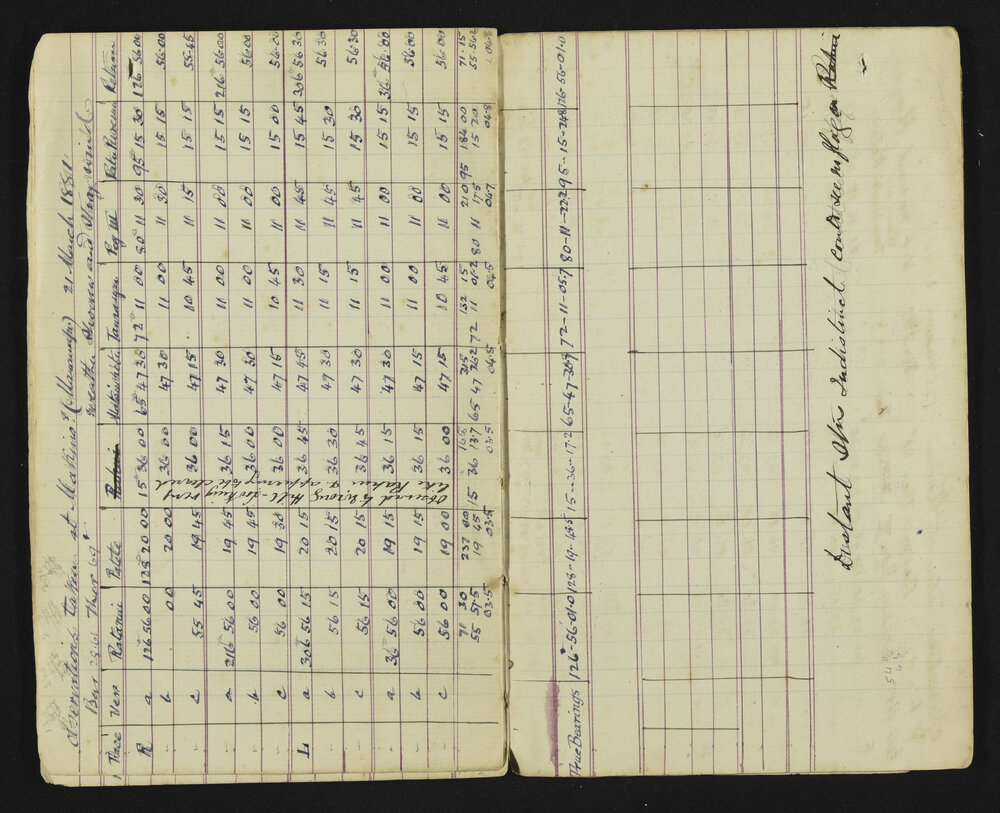 Observations taken at Makino (Manawatu) 21 March 1881
Bar 28.61 Ther 69° Weather Showery and Strong wind
Face Vern Ratanui Patete Rahui Mataiwhetu Peg III Return
R a 126° 56 00 128 20 00 15° 36 00 65° 47 30 72° 11 00 80° 11 30 95° 15 30 126 56 00
" b 00 20 00 36 00 47 30 11 00 11 30 15 15 56 00
" c 55 45 19 45 36 00 47 15 10 45 11 15 15 15 55 45
" a 216 56 00 19 45 36 15 47 30 11 00 11 00 15 15 216 56 00
" b 56 00 19 45 36 00 47 30 11 00 11 00 15 15 56 00
" c 56 00 19 30 36 00 47 15 10 45 11 00 15 00 56 00
L a 306 56 15 20 15 36 45 47 45 11 30 11 45 15 45 306 56 30
" b 56 15 20 15 36 30 47 30 11 15 11 45 15 30 56 30
" c 56 15 20 15 36 45 47 30 11 15 11 45 15 30 56 30
" a 36° 56 00 19 15 36 15 47 30 11 00 11 00 15 15 36 56 00
" b 56 00 19 15 36 15 47 15 11 00 11 00 15 15 56 00
" c 56 00 19 00 36 00 47 15 10 45 11 00 15 15 56 00
71 30 237 00 132 15 210 184 00 71.15
55 57.5 19 45 15 36 13.7 65 47 26.2 72 11 80 11 17.5 95 15 20 55 56.2
03.5 03.5 03.5 04.5 04.5 04.7 04.8 04.8
Observed to wrong Hill - looking very
like Rahui & appearing to be cleared
True Bearings 126-56-01.0 128-19-48.5 15-36-17.2 65-47-30.7 72-11-05.7 80-11-22.2 95-15-24.8 126-56-01.0
Distant Stns Indistinct (could see no flag on Ratanui)
540
45